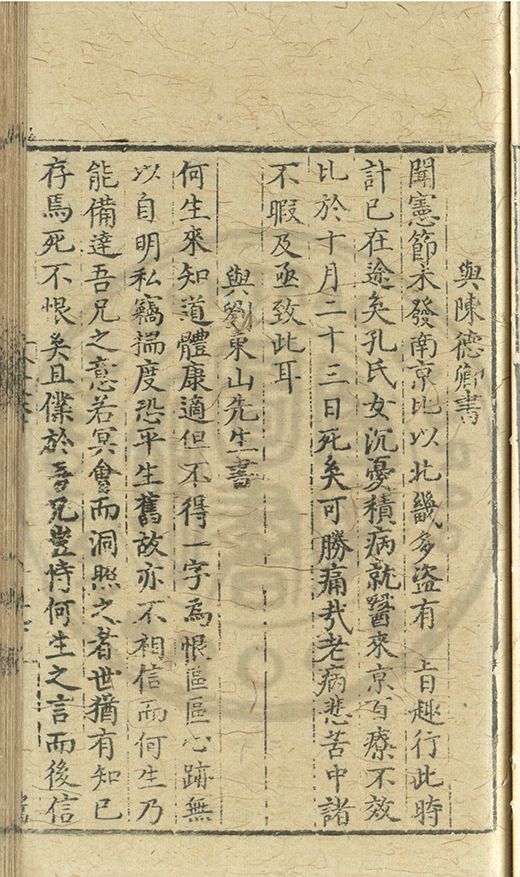 與陳德卿書
聞憲節未發南京比以北畿多盜有 旨趣行此時
計已在途矣孔氏女沉憂積病就醫來京百療不效
比於十月二十三日死矣可勝痛哉老病悲苦中諸
不暇及亟致此耳
與劉東山先生書
何生來知道體康適但不得一字為恨區區心跡無
以自明私竊揣度恐平生舊故亦不相信而何生乃
能備達吾兄之意若冥會而洞照之者世猶有知己
存焉死不恨矣且僕於吾兄豈恃何生之言而後信